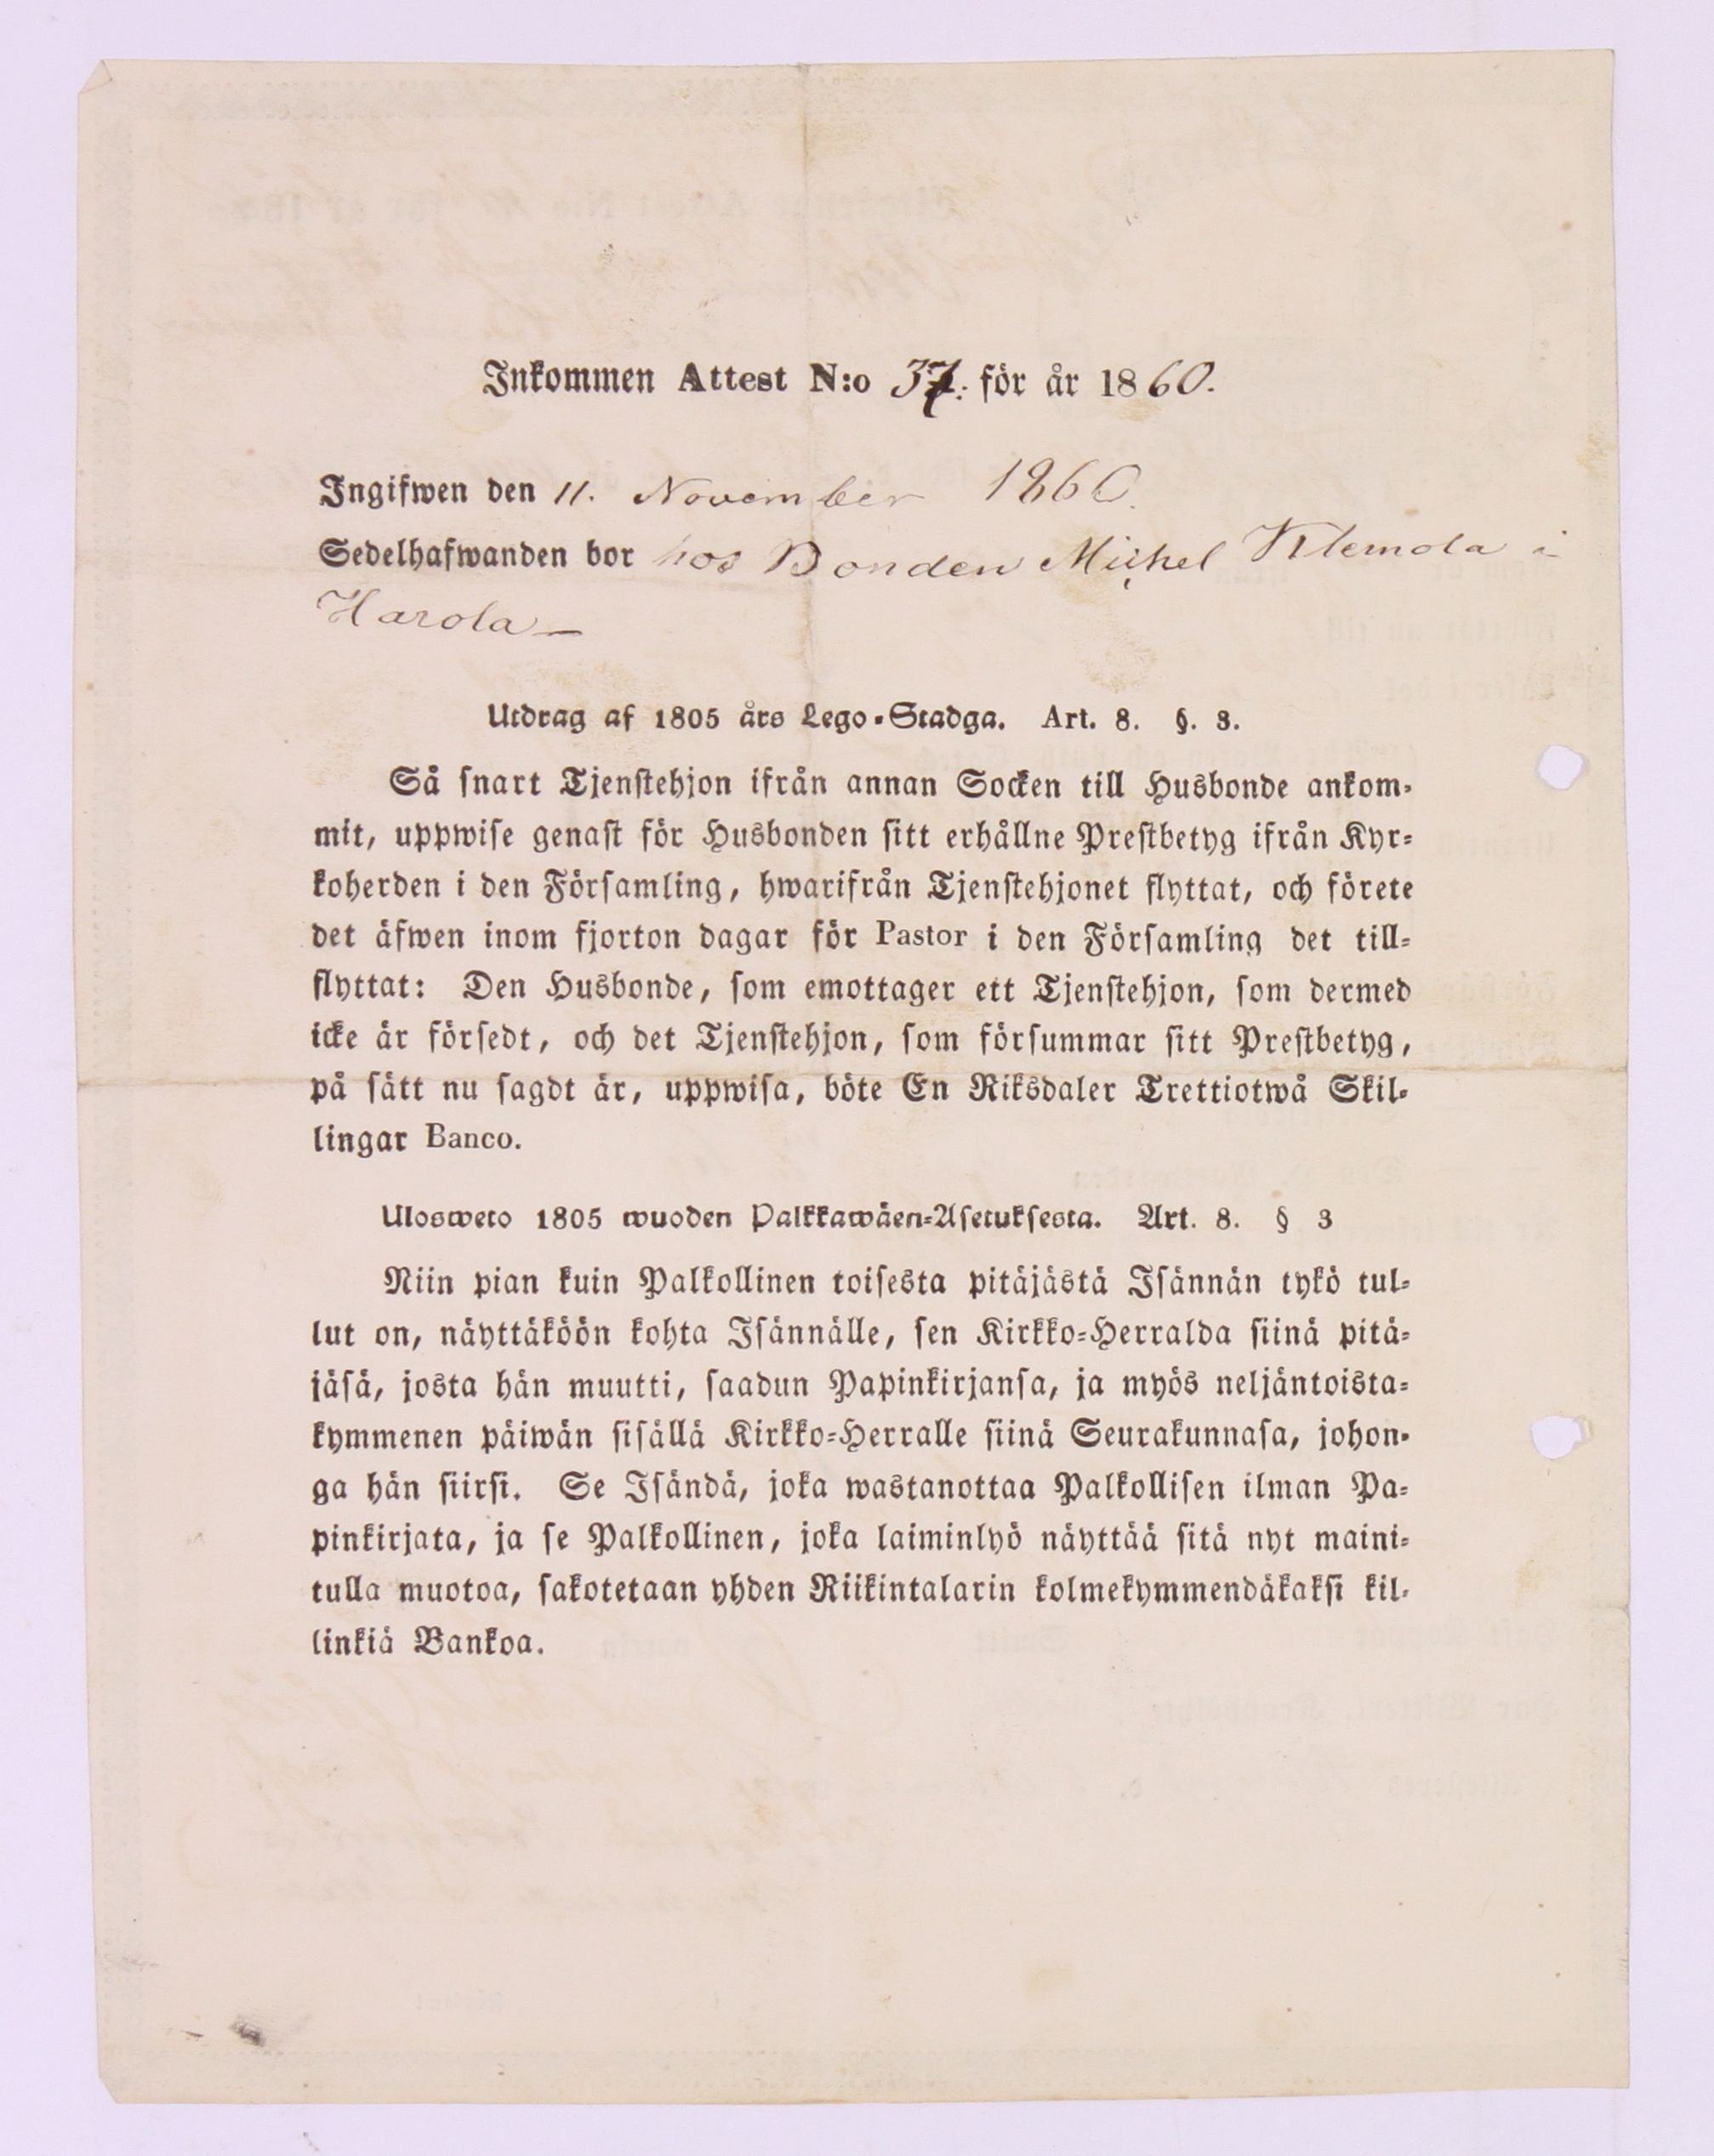 Inkommen Attest N:o 37. för år 1860.
Ingifwen den 11. November 1860.
Sedelhafwanden bor hos Bonden Michel Klemola i
Harola —
Utdrag af 1805 års Lego-Stadga. Art. 8. §. 3.
Så snart Tjenstehjon ifrån annan Socken till Husbonde ankom-
mit, uppwise genast för Husbonden sitt erhållne Prestbetyg ifrån Kyr-
koherden i den Församling, hwarifrån Tjenstehjonet flyttat, och förete
det äfwen inom fjorton dagar för Pastor i den Församling det till-
flyttat: Den Husbonde, som emottager ett Tjenstehjon, som dermed
icke är försedt, och det Tjenstehjon, som försummar sitt Prestbetyg,
på sätt nu sagdt är, uppwisa, böte En Riksdaler Trettiotwå Skil-
lingar Banco.
Ulosweto 1805 wuoden Palkkawäen-Asetuksesta. Art. 8. § 3
Niin pian kuin Palkollinen toisesta pitäjästä Isännän tykö tul-
lut on, näyttäköön kohta Isännälle, sen Kirkko-Herralda siinä pitä-
jäsä, josta hän muutti, saadun Papinkirjansa, ja myös neljäntoista-
kymmenen päiwän sisällä Kirkko-Herralle siinä Seurakunnasa, johon-
ga hän siirsi. Se Isändä, joka wastanottaa Palkollisen ilman Pa-
pinkirjata, ja se Palkollinen, joka laiminlyö näyttää sitä nyt maini-
tulla muotoa, sakotetaan yhden Riikintalarin kolmekymmendäkaksi kil-
linkiä Bankoa.